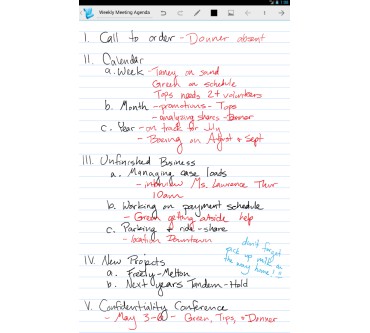 Weekly Meeting Agenda
I. Call to order - Donner absent
II. Calendar
a. Week - Taney on sand
Green on schedule
Tops needs 2+ volunteers
b. Month - promotions - Tops
- analyzing shares - Donner
c. Year - on track for July
- Boeing on August & Sept
III. Unfinished Business
a. Managing case loads
- interview Ms. Lawrance Thur
10am
b. Working on payment schedule
- Green getting outside help
c. Parking & ride-share
- location Downtown
don't forget
pick up milk on
the way home!
IV. New Projects
a. Freety-Melton
b. Next years Tandem-Hold
V. Confidentiality Conference
- May 3- - Green, Tips, & Donner